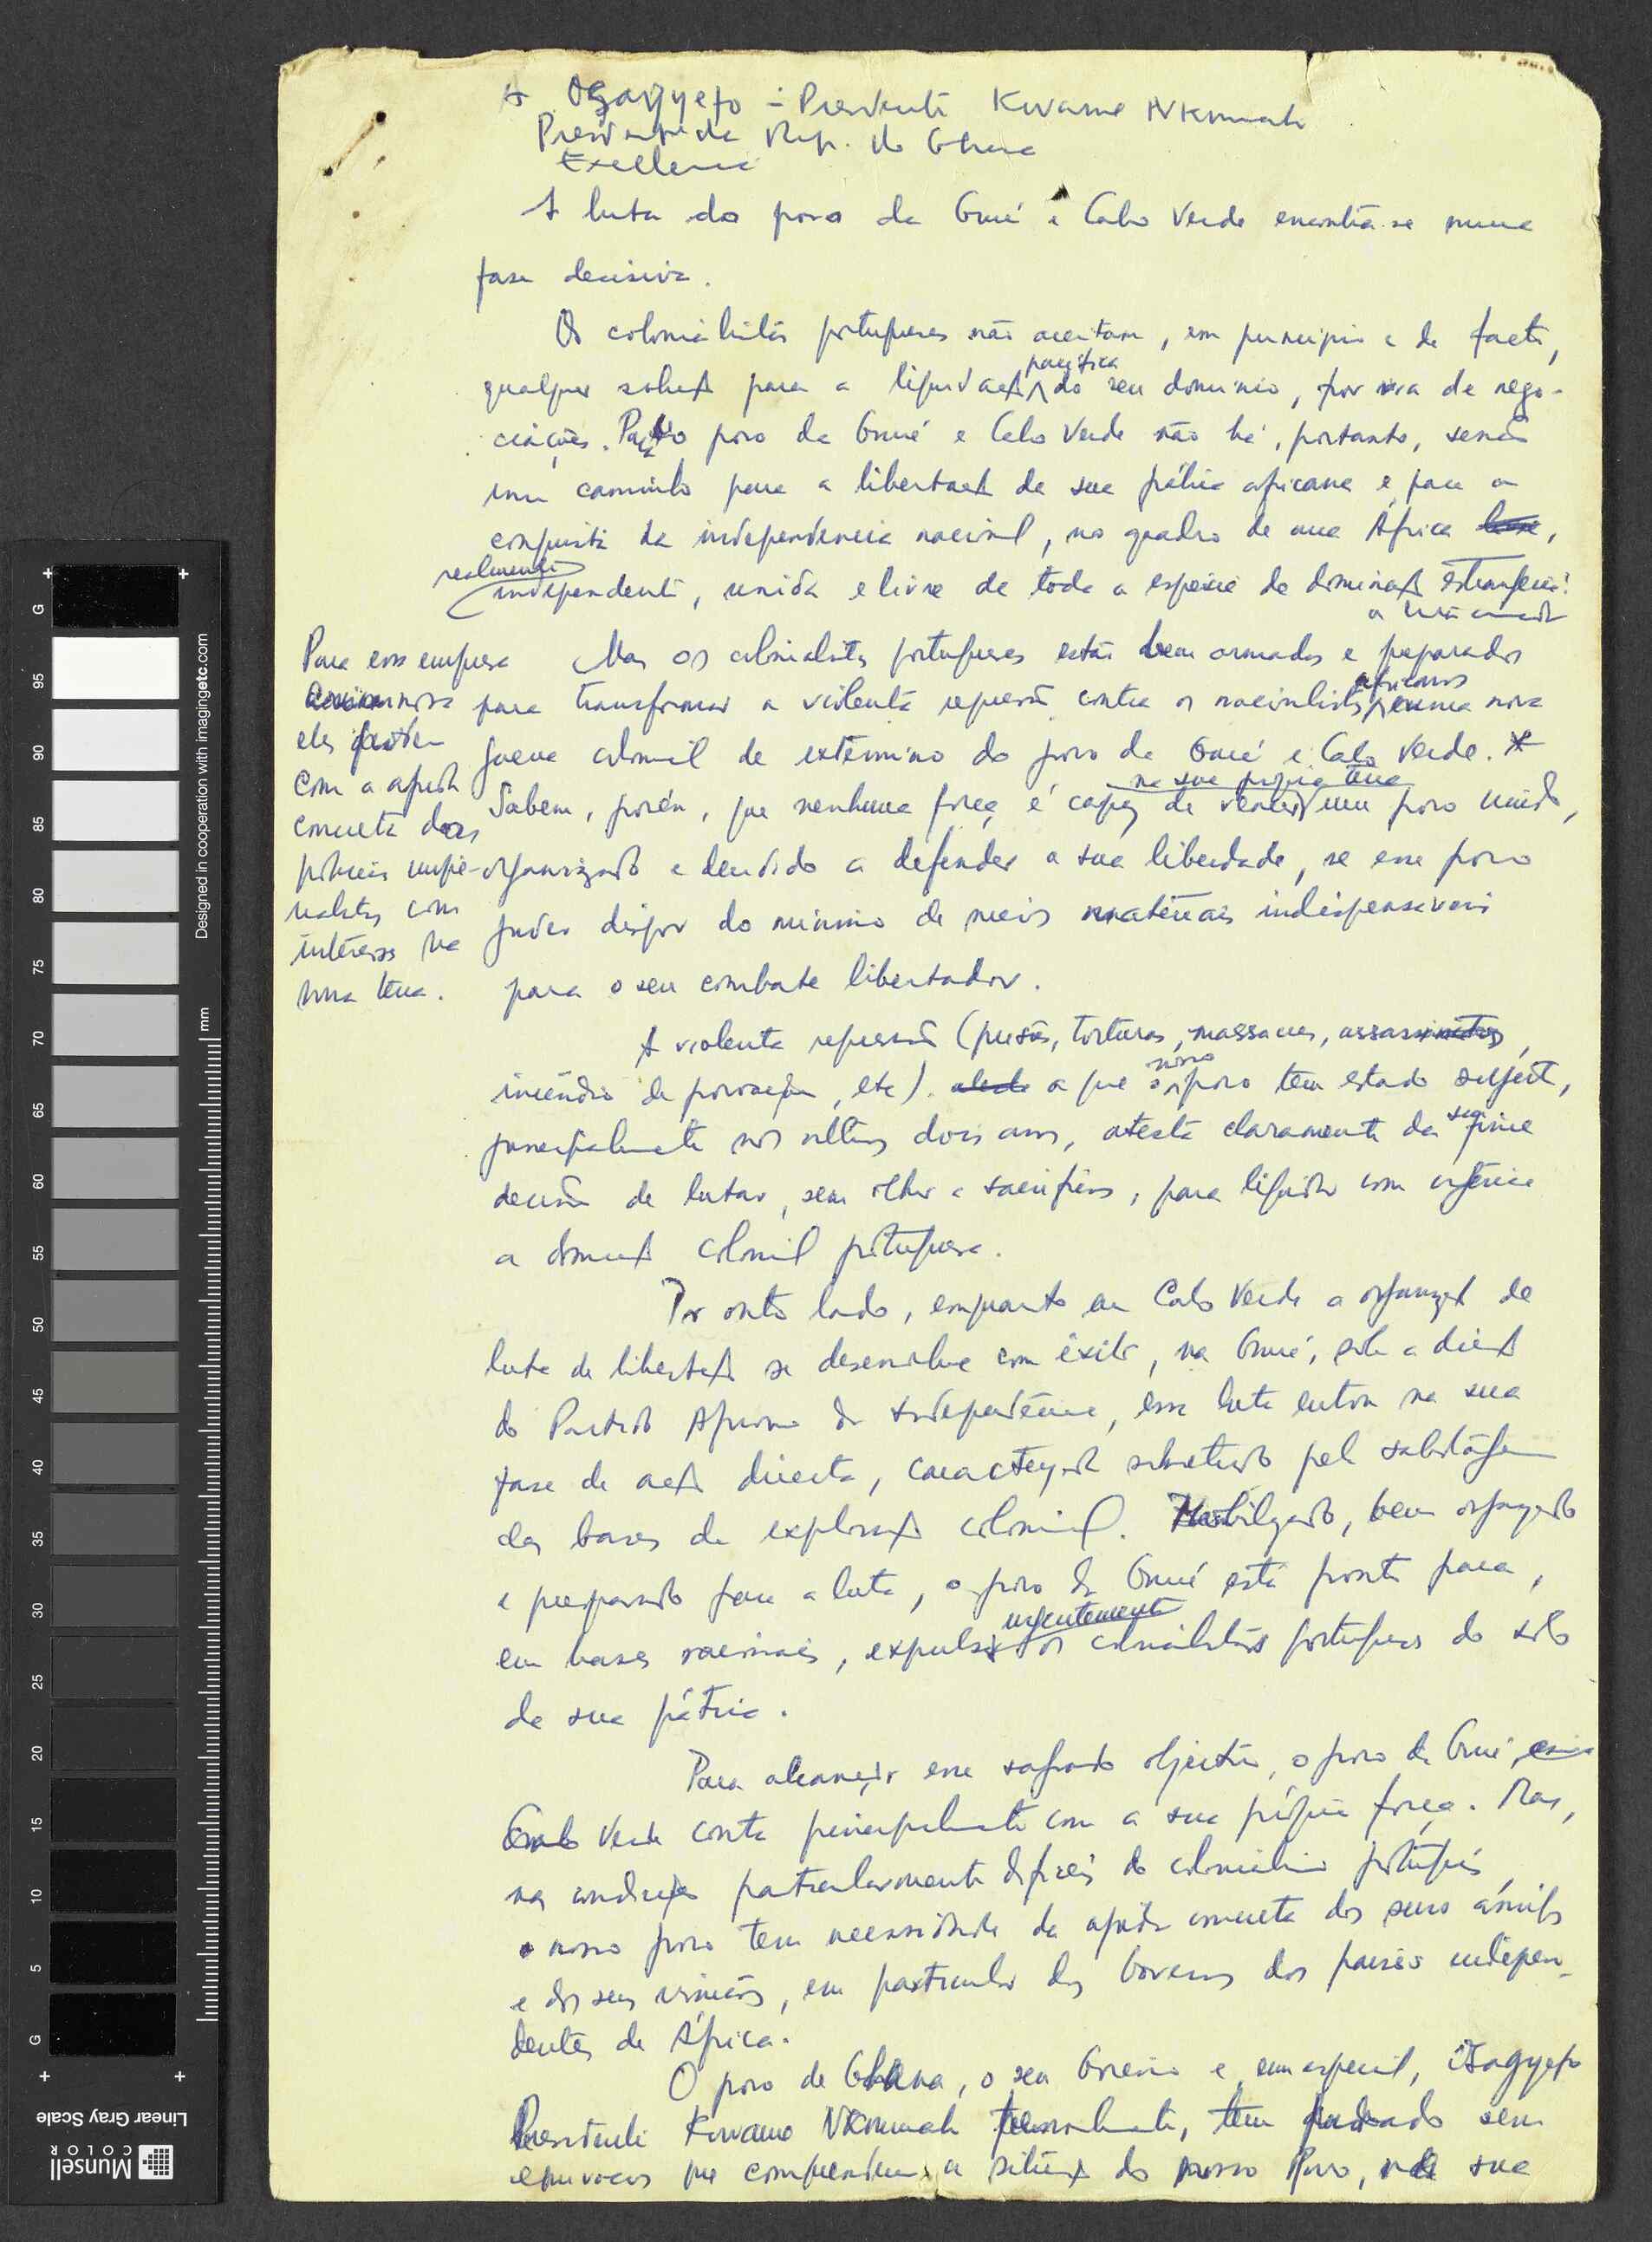 A Osagyefo - Presidente Kwame Nkrumah
Presidente da Rep. do Ghana
Excellence
A luta do povo da Guiné e Cabo Verde encontra-se numa
fase decisiva.
Os colonialistas portugueses não aceitam, em princípio e de facto,
pacífica
qualquer solução para a liquidação do seu domínio, por via de nego-
ciações. Para o povo da Guiné e Cabo Verde não há, portanto, senão
um caminho para a libertação da sua pátria africana e para a
conquista da independência nacional, no quadro de uma África ,
realmente
independente, unida e livre de toda a espécie de dominação estrangeira:
a luta armada
Mas os colonialistas portugueses estão bem armados e preparados
africanos
para transformar a violenta repressão contra os nacionalistas numa nova
guerra colonial de extermínio do povo da Guiné e Cabo Verde. *
Para essa empresa
criminosa
eles
com a ajuda
concreta das
potências impe-
rialistas com
interesses na
nossa terra.
na sua própria terra
Sabem, porém, que nenhuma força é capaz de vencer um povo unido,
organizado e decidido a defender a sua liberdade, se esse povo
puder dispor do mínimo de meios materiais indispensáveis
para o seu combate libertador.
A violenta repressão (prisões, torturas, massacres, assassinatos,
nosso
incêndio de povoações, etc). a que o povo tem estado sujeito,
sua
principalmente nos últimos dois anos, atesta claramente da firme
decisão de lutar, sem olhar a sacrifícios, para liquidar com urgência
a dominação colonial portuguesa.
Por outro lado, enquanto em Cabo Verde a organização da
luta de libertação se desenvolve com êxito, na Guiné, sob a direcção
do Partido Africano da Independência, essa luta entrou na sua
fase de acção directa, caracterizada sobretudo pela sabotagem
das bases da exploração colonial. Mobilizado, bem organizado
e preparado para a luta, o povo da Guiné está pronto para,
urgentemente
em bases racionais, expulsar os colonialistas portugueses do solo
da sua pátria.
Para alcançar esse sagrado objectivo, o povo da Guiné e
Cabo Verde conta principalmente com a sua própria força. Mas,
nas condições particularmente difíceis do colonialismo português,
o nosso povo tem necessidade da ajuda concreta dos seus amigos
e dos seus irmãos, em particular dos Governos dos países indepen-
dentes de África.
O povo de Ghana, o seu Governo e, em especial, Osagyefo
Presidente Kwame Nkrumah pessoalmente, tem sem
equívocos que compreendem a situação do nosso Povo, na sua